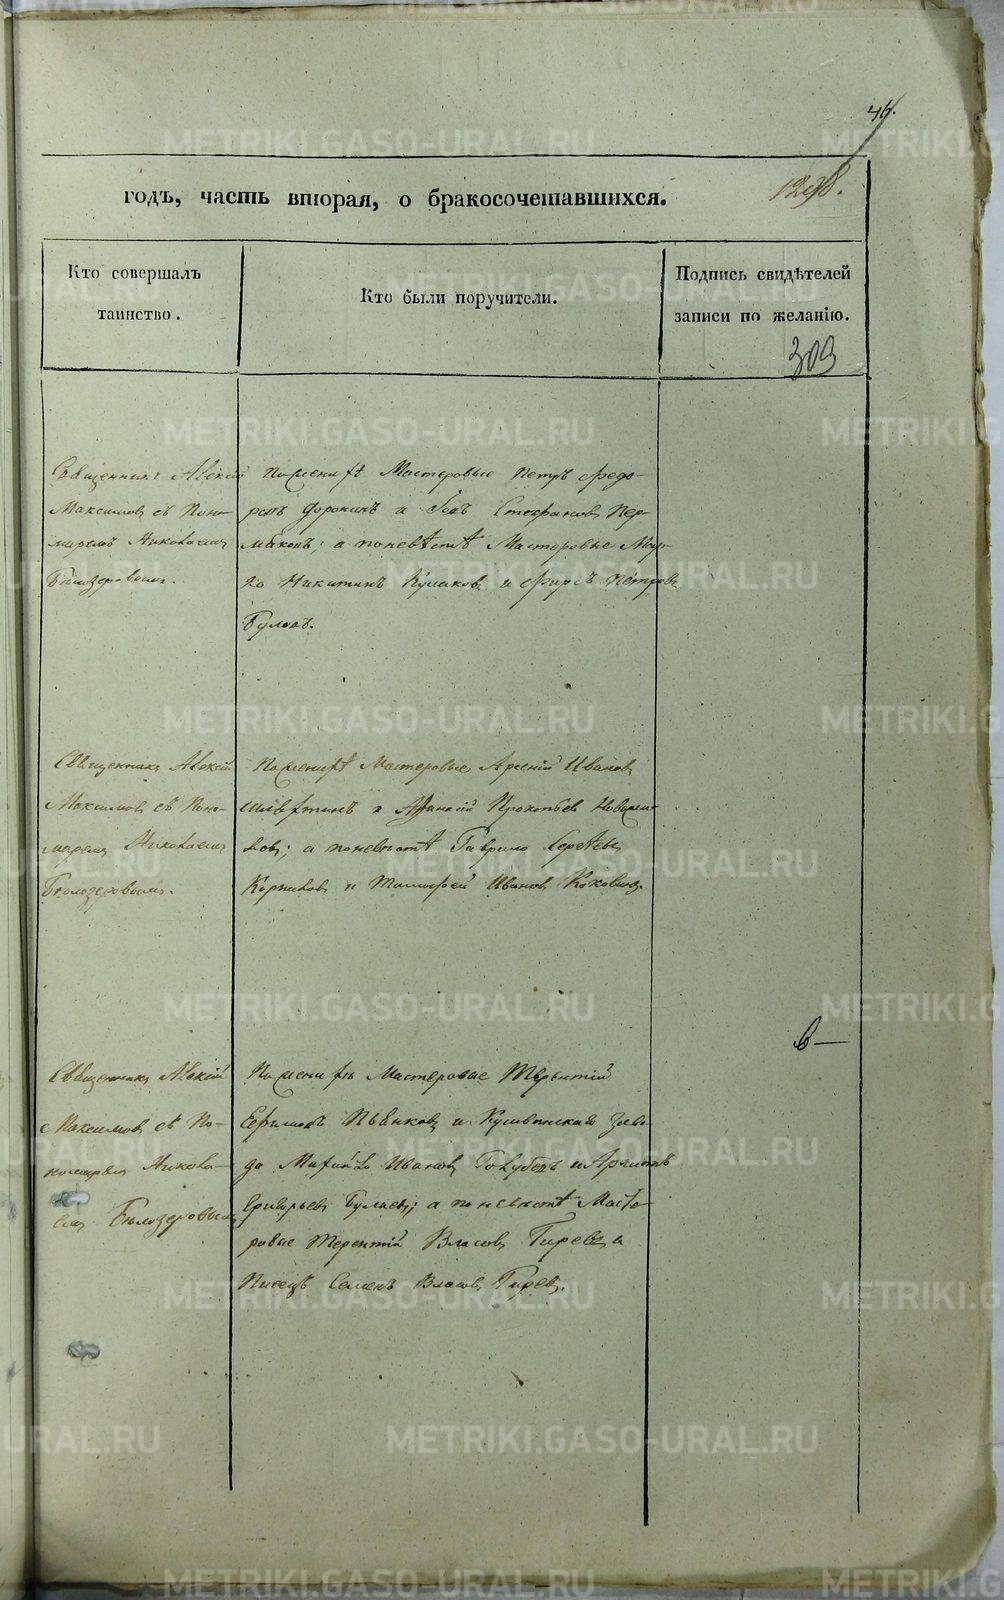 46.
годъ, часть вторая, о бракосочетавшихся.
1298.
Кто совершалъ
таинство.
Кто были поручители.
Подпись свидѣтелей
записи по желанію.
309
Священникъ Алексій
Максимовъ съ Поно-
маремъ Николаемъ
Бѣлозеровымъ.
По женихѣ Мастеровые Петръ Федо-
ровъ и Стефановъ Пер-
мяковъ; а по невѣстѣ Мастеровые
Никитинъ Кулаковъ и Фирсъ Петровъ
Булаевъ.
Священникъ Алексій
Максимовъ съ Поно-
маремъ Николаемъ
Бѣлозеровымъ.
По женихѣ Мастеровые Арсеній Ивановъ
и Афанасій Прокопьевъ Новосел-
ковъ; а по невѣстѣ Гаврило Сергѣевъ
Корниловъ и Тимофей Ивановъ Коковинъ.
в—
Священникъ Алексій
Максимовъ съ По-
номаремъ Никола-
емъ Бѣлозеровымъ
По женихѣ Мастеровые Терентій
Ефимовъ Пьянковъ и Кушвинскаго заво-
да Михайло Ивановъ Голубевъ и
Григорьевъ Булаевъ; а по невѣстѣ Масте-
ровые Терентій Власовъ Гиревъ и
Писецъ Семенъ Власовъ Гиревъ.
METRIKI.GASO-URAL.RU